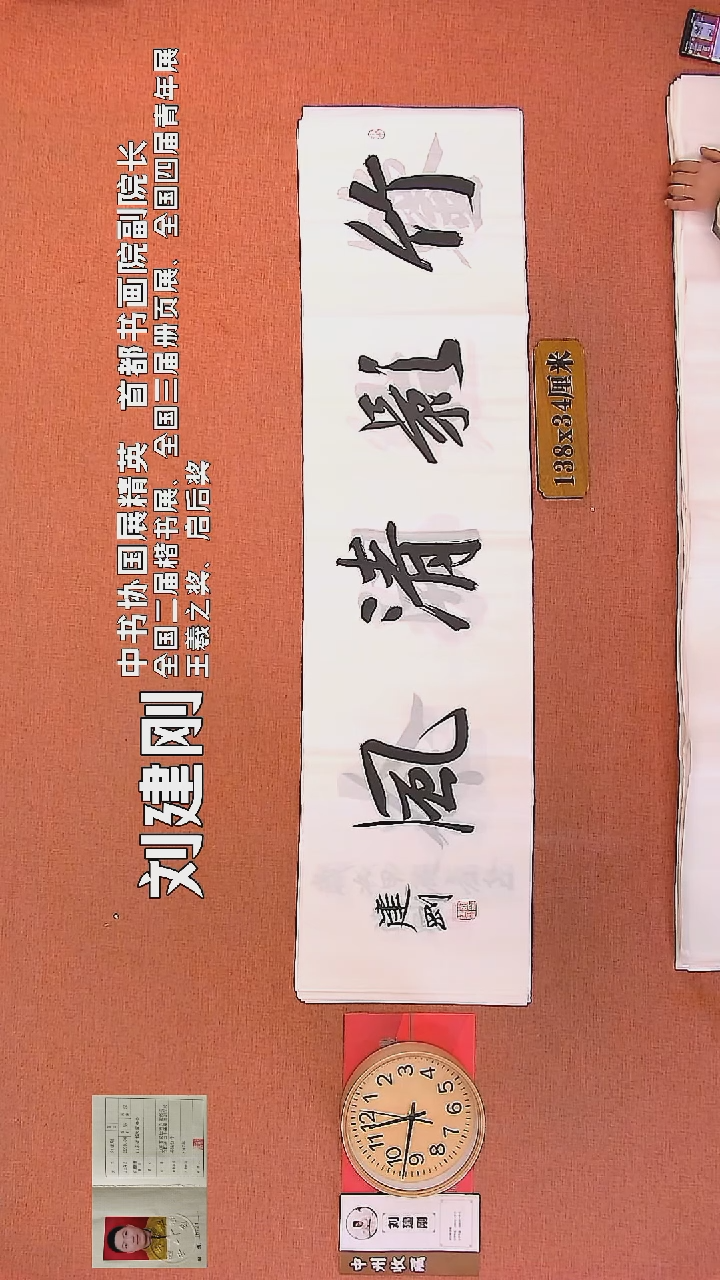 刘建刚
中书协国展精英 首都书画院副院长
全国二届楷书展、全国三届册页展、全国四届青年展
王羲之奖、启后奖
竹 清風
建剛
138x34厘米
12 1 2 3 4 5 6 7 8 9 10 11
刘建刚
中州收藏